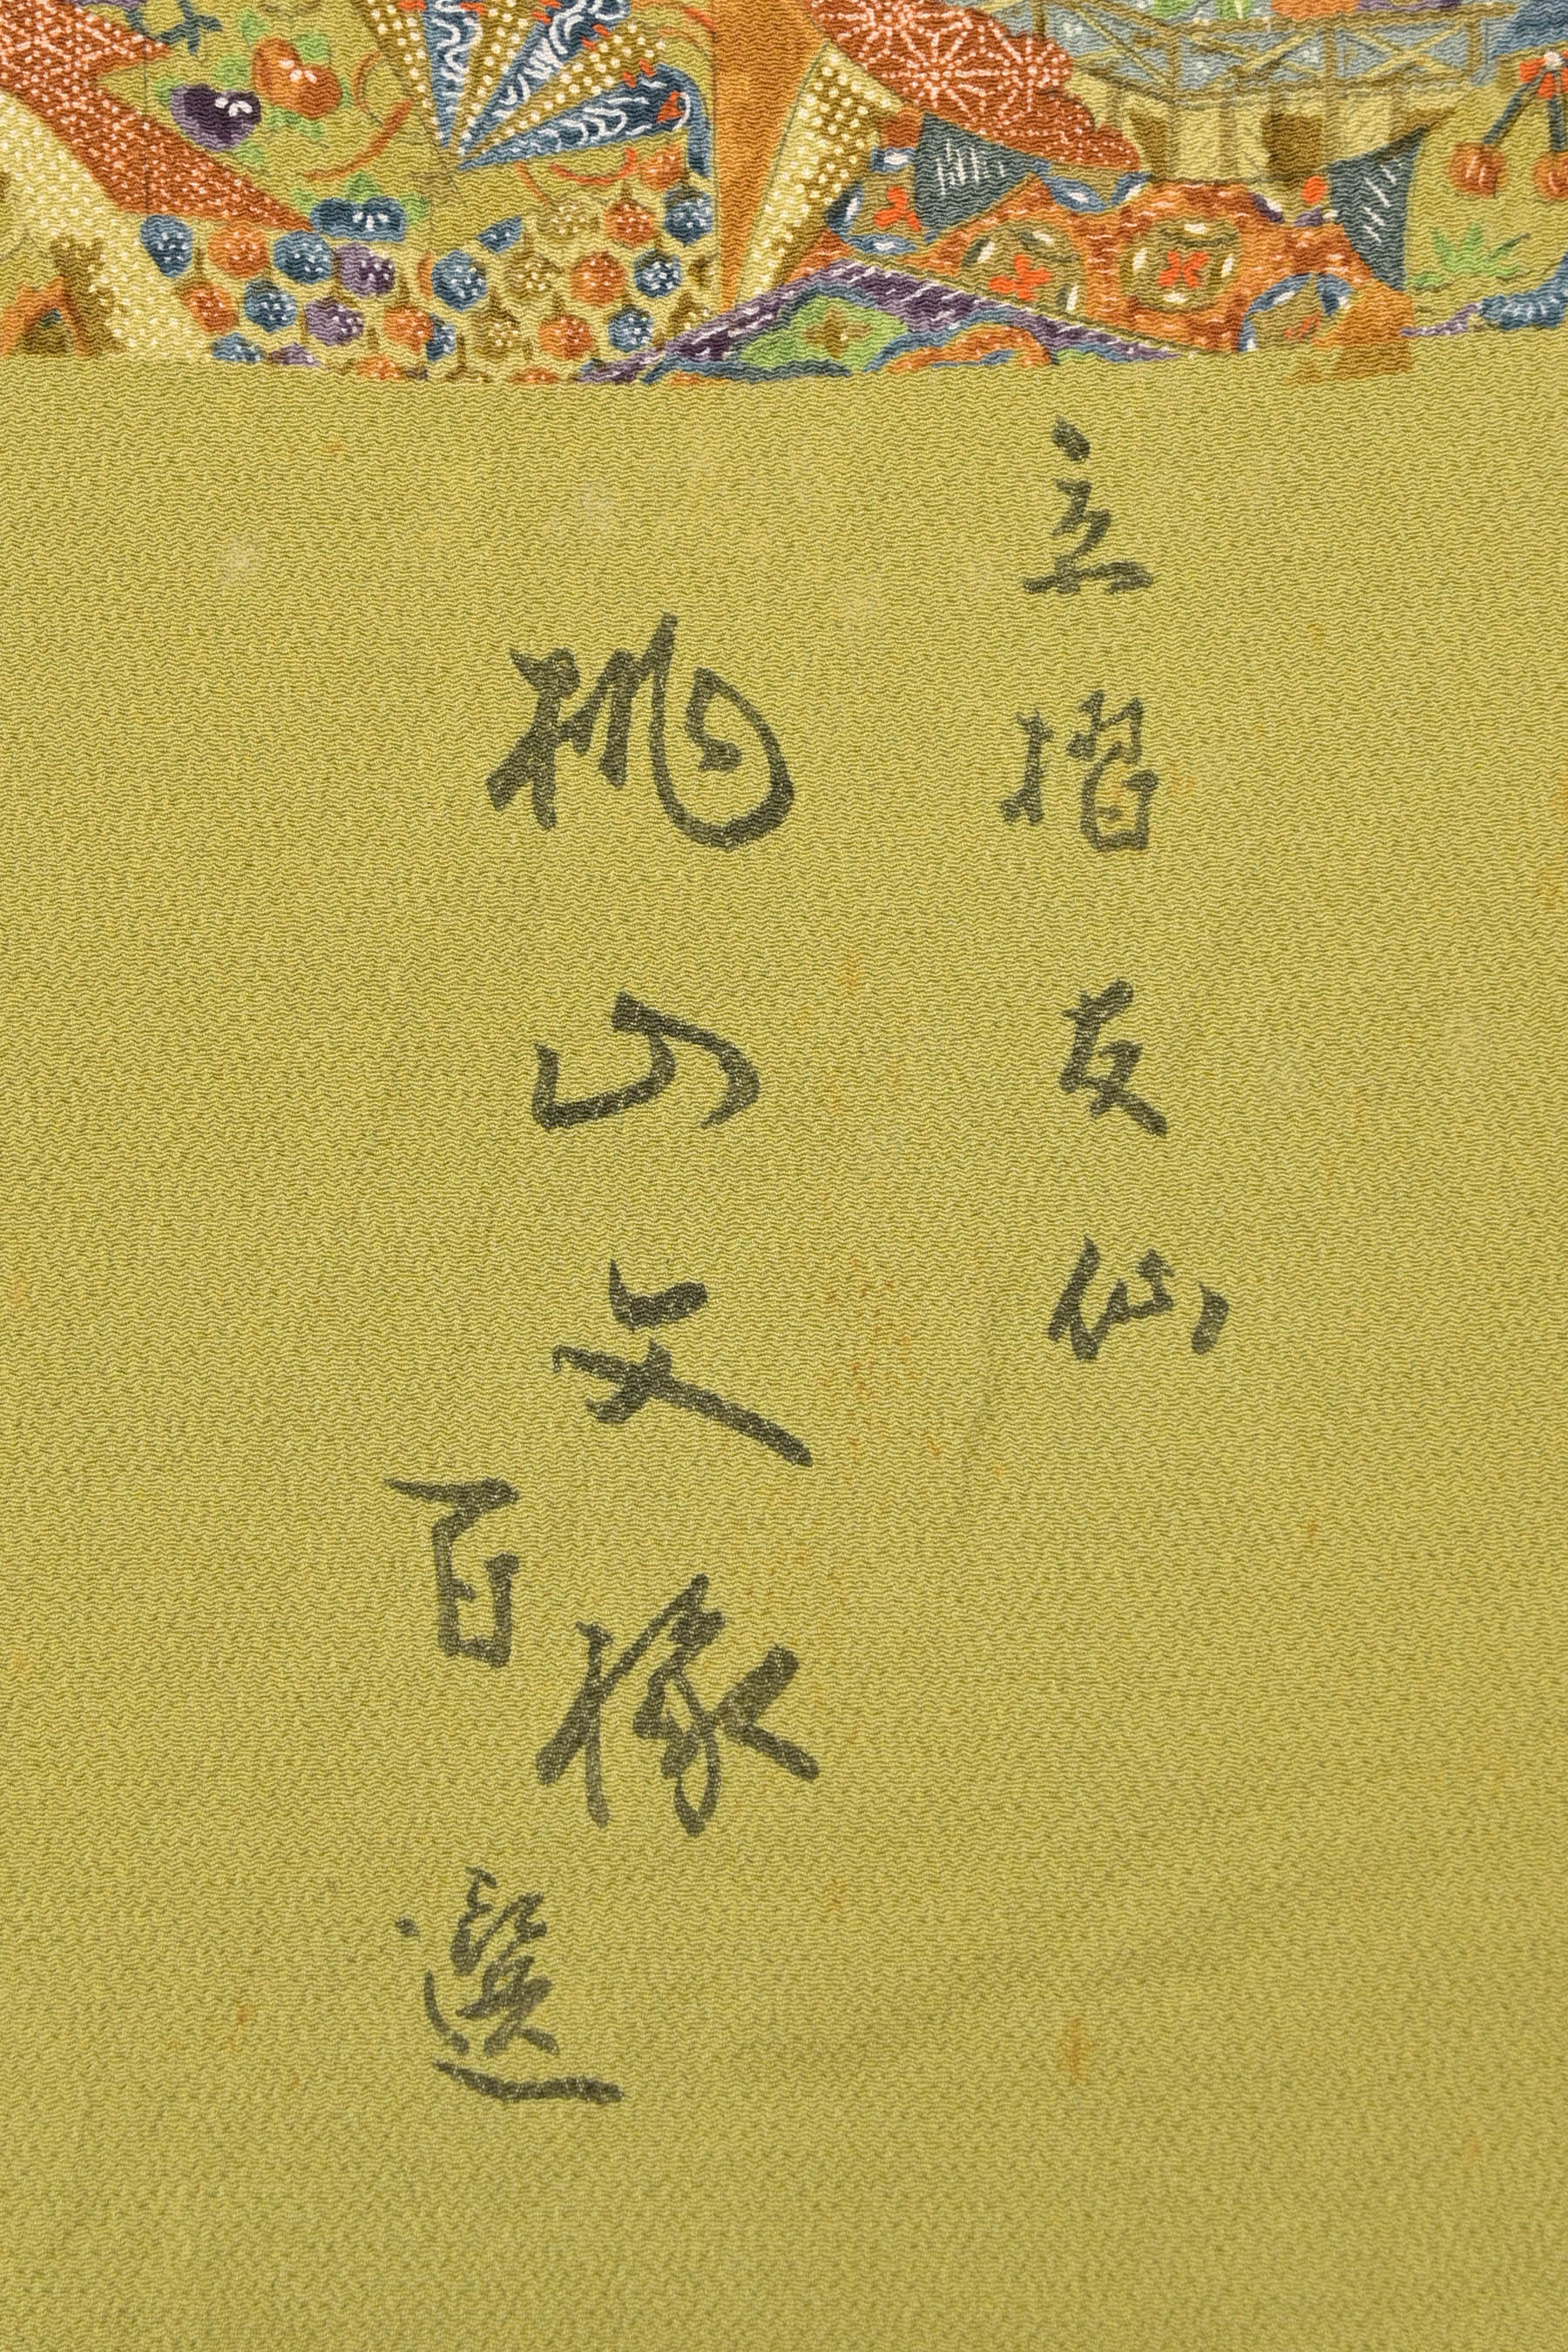 立摺友仙
桃山文様
百選